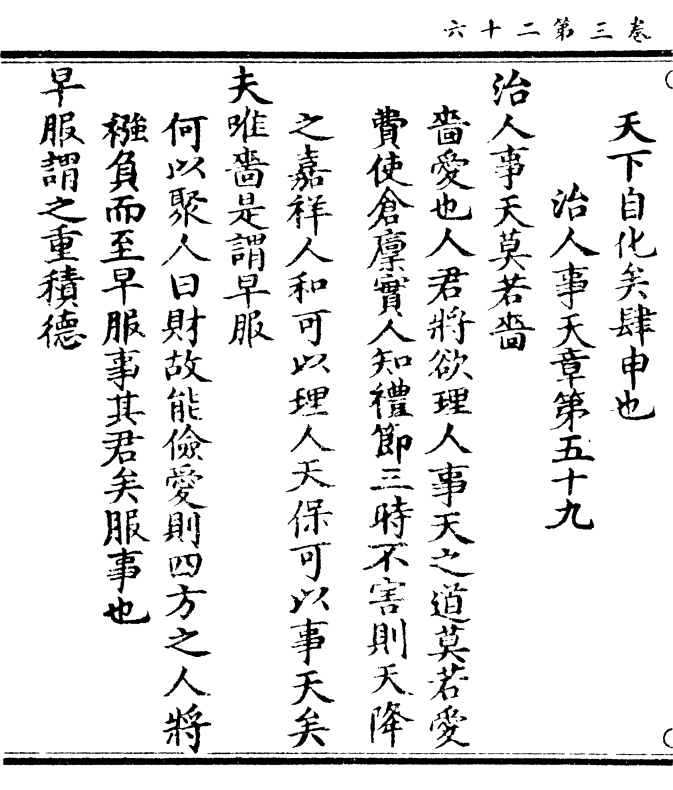 卷三第二十六
天下自化矣肆申也
治人事天章第五十九
治人事天莫若嗇
嗇愛也人君將欲理人事天之道莫若愛
費使倉廩實人知禮節三時不害則天降
之嘉祥人和可以理人天保可以事天矣
夫唯嗇是謂早服
何以聚人曰財故能儉愛則四方之人將
襁負而至早服事其君矣服事也
早服謂之重積德